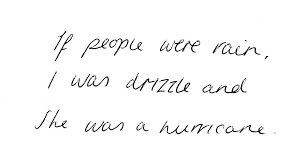 If people were rain,
I was drizzle and
She was a hurricane.